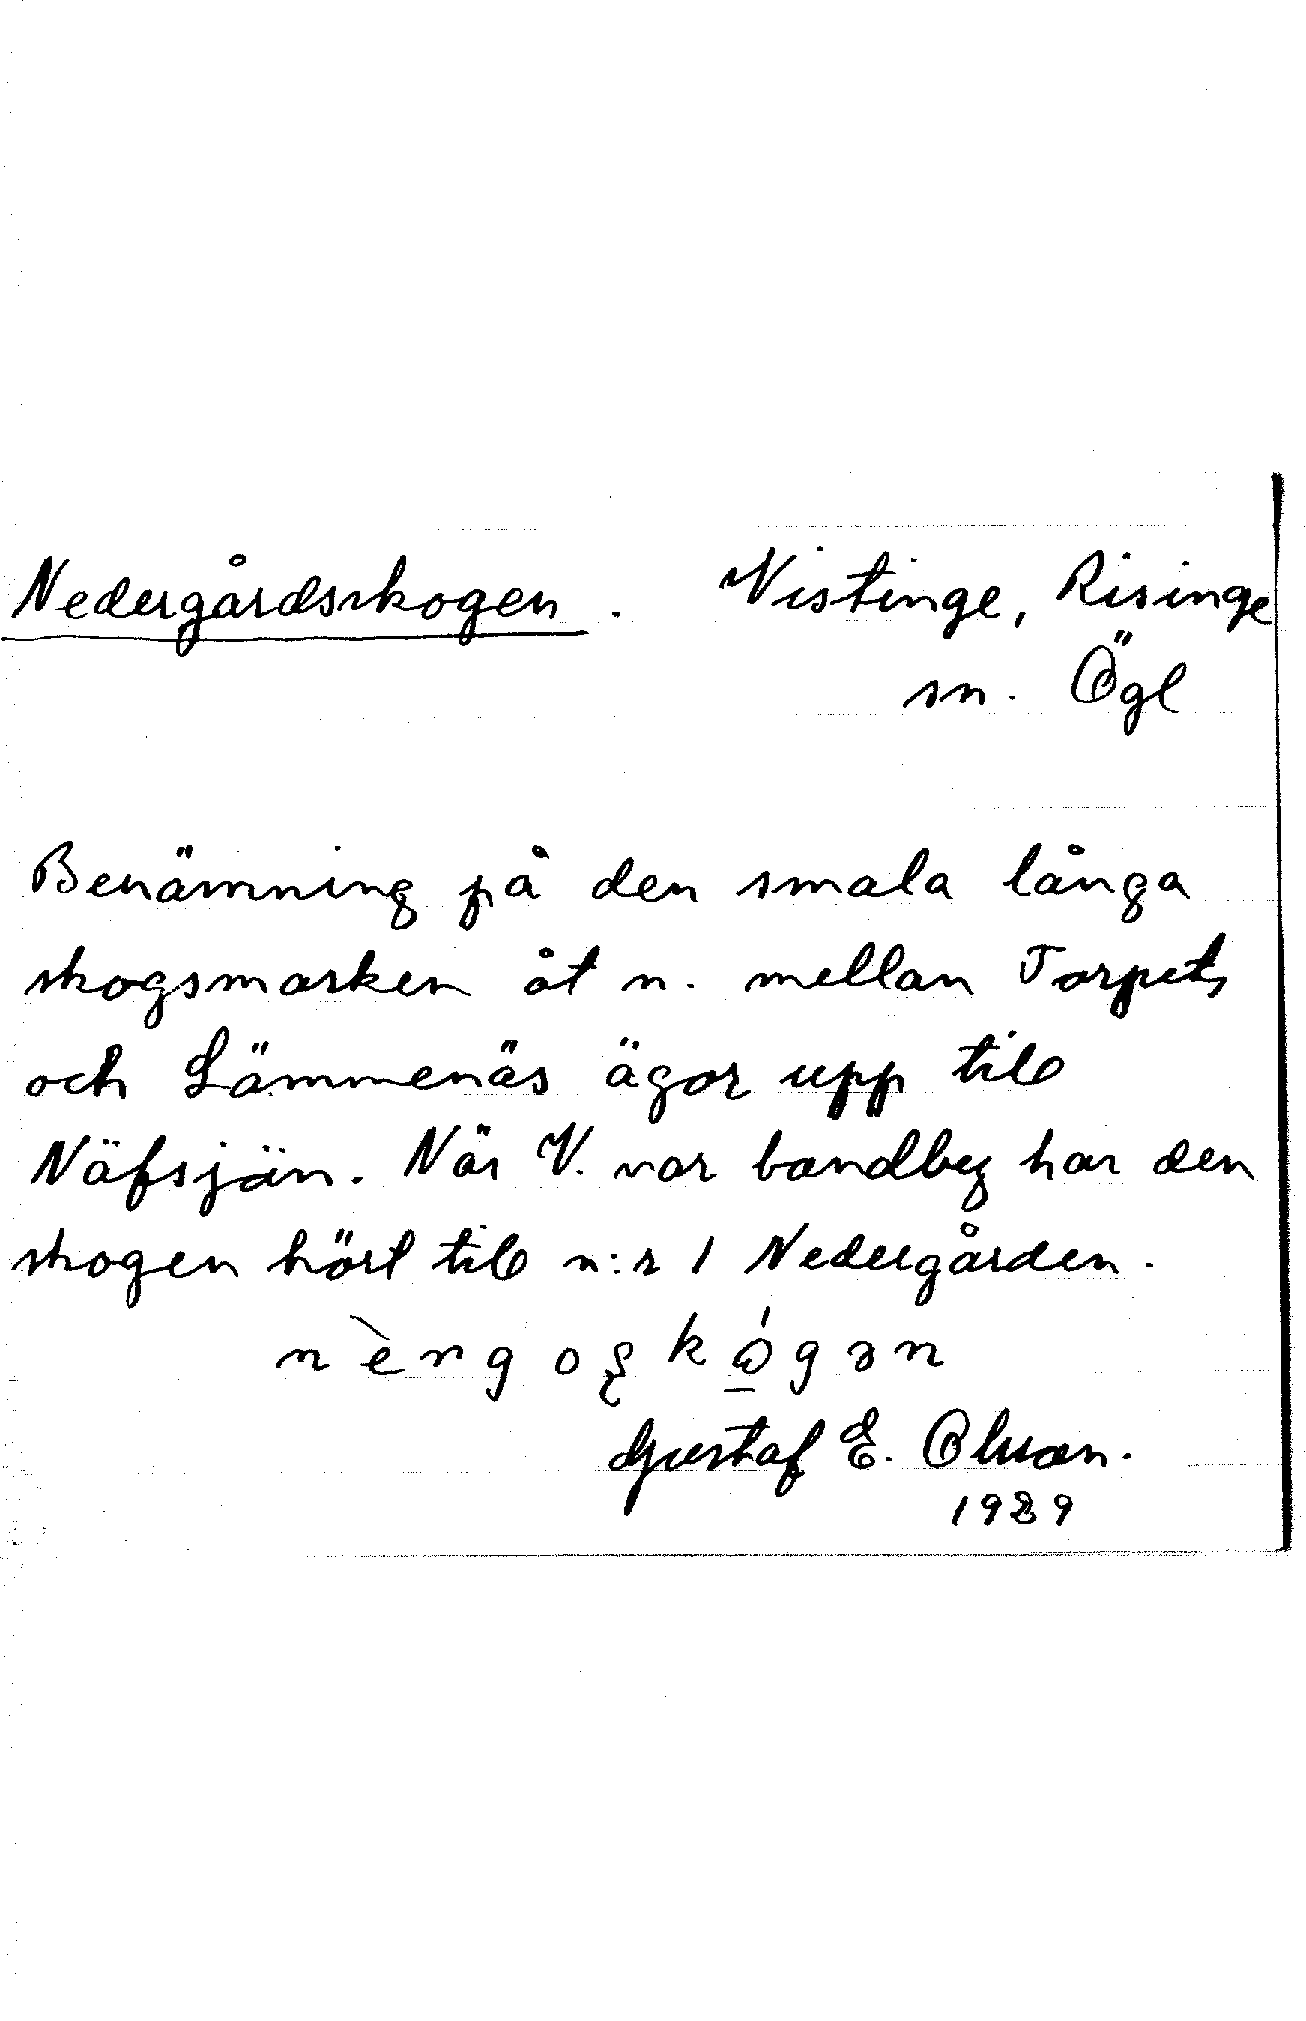 Nedergårdsskogen. Vistinge, Risinge
sn. Ögl
Benämning på den smala långa
skogsmarken åt n. mellan Torpets
och Lämmenäs ägor upp till
Näfsjön. När V. var bandby har den
skogen hört till n:r 1 Nedergården.
Gustaf E. Olsson.
1929